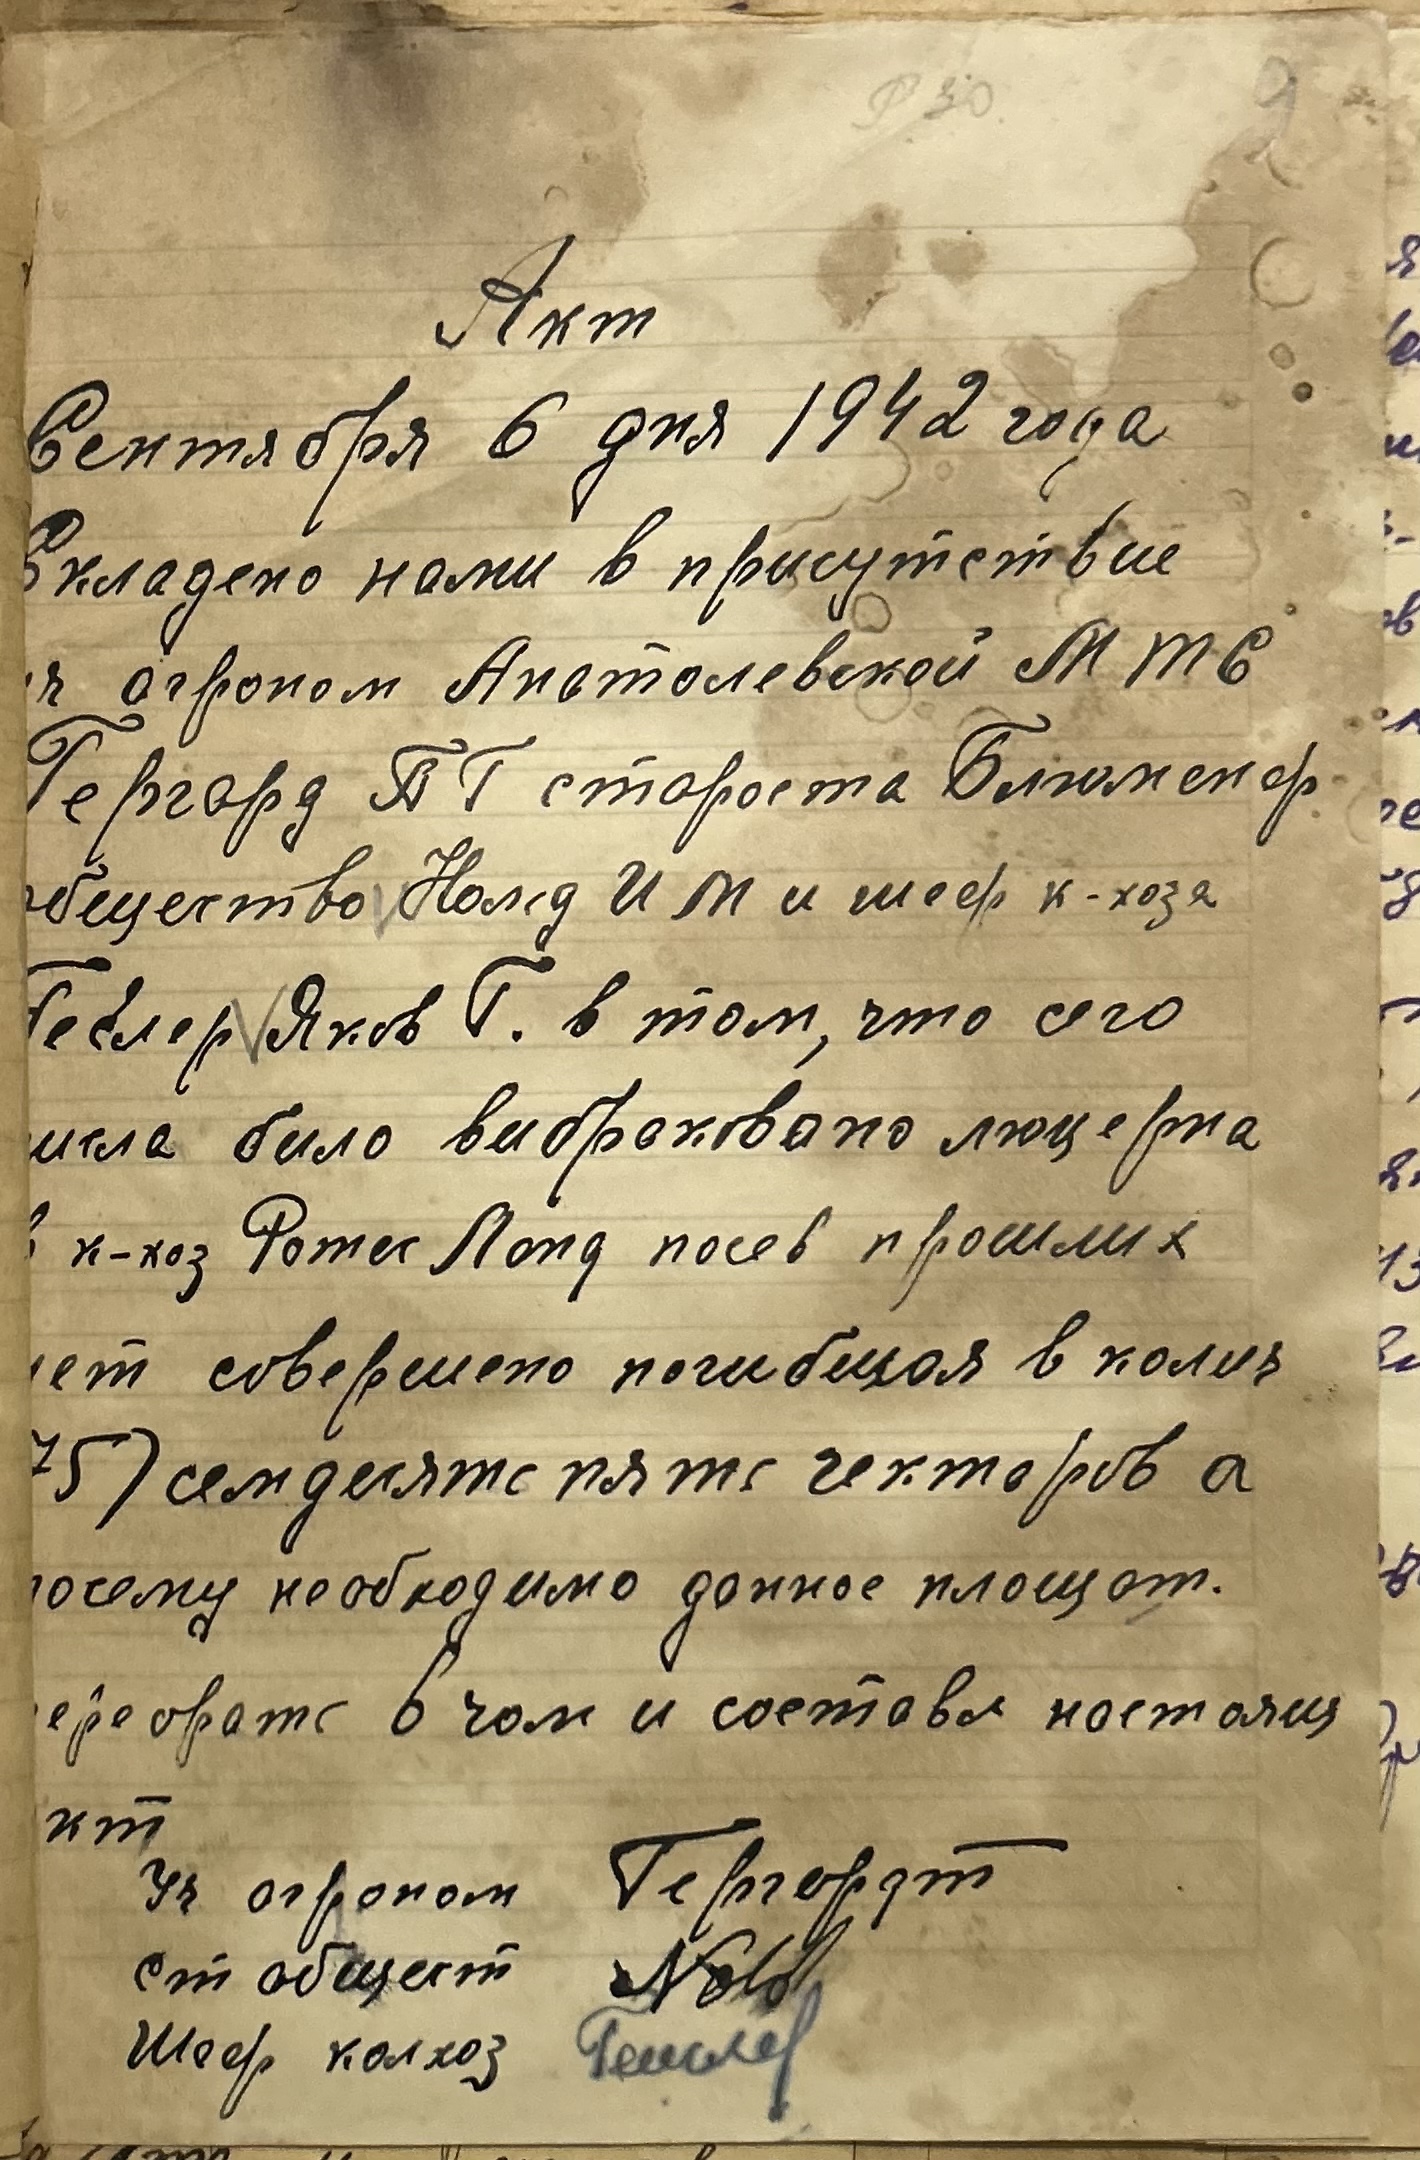 Акт
Сентября 6 дня 1942 года
Складено нами в присутствие
уч агроном Анатолевской МТС
Гергард ВГ староста Блюменфр
общество Нолд И М и шеф к-хоза
Геслер Яков Г. в том, что сего
числа било вибраковано люцерна
в к-хоз Ротес Ланд посев прошлих
лет совершено погибшая в колич
75) семдесять пять гектаров а
посему необходимо данное площат.
переорать в чом и составл настоящ
акт
Уч агроном Гергардт
ст общест Nold
Шеф колхоз Гейслер